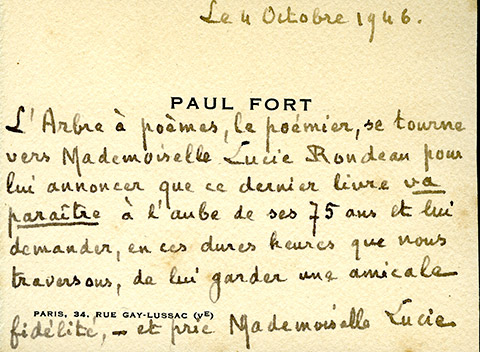 Le 4 Octobre 1946.
PAUL FORT
L'Arbre à poèmes, le poémier, se tourne
vers Mademoiselle Lucie Rondeau pour
lui annoncer que ce dernier livre va
paraître à l'aube de ses 75 ans et lui
demander, en ces dures heures que nous
traversons, de lui garder une amicale
PARIS, 34, RUE GAY-LUSSAC (VE)
fidélité, – et prie Mademoiselle Lucie